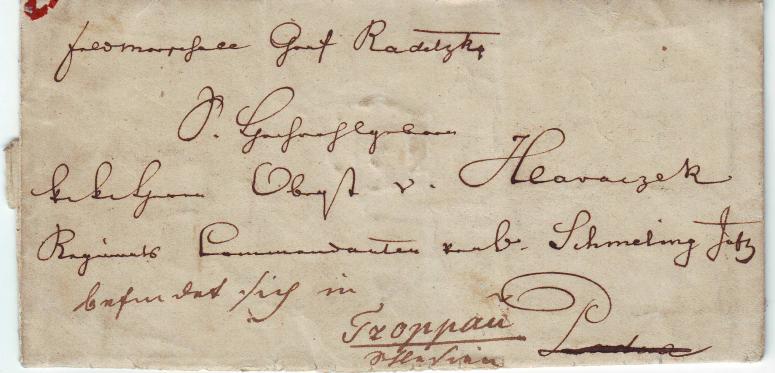 Feldmarschall Graf Radetzky
S. Hochwohlgeboren
k. k. Herrn Obrist v. Hlavaczek
Regiments Commandanten von B. Schmeling Inft
befindet sich in
Troppau Padua
Schlesien